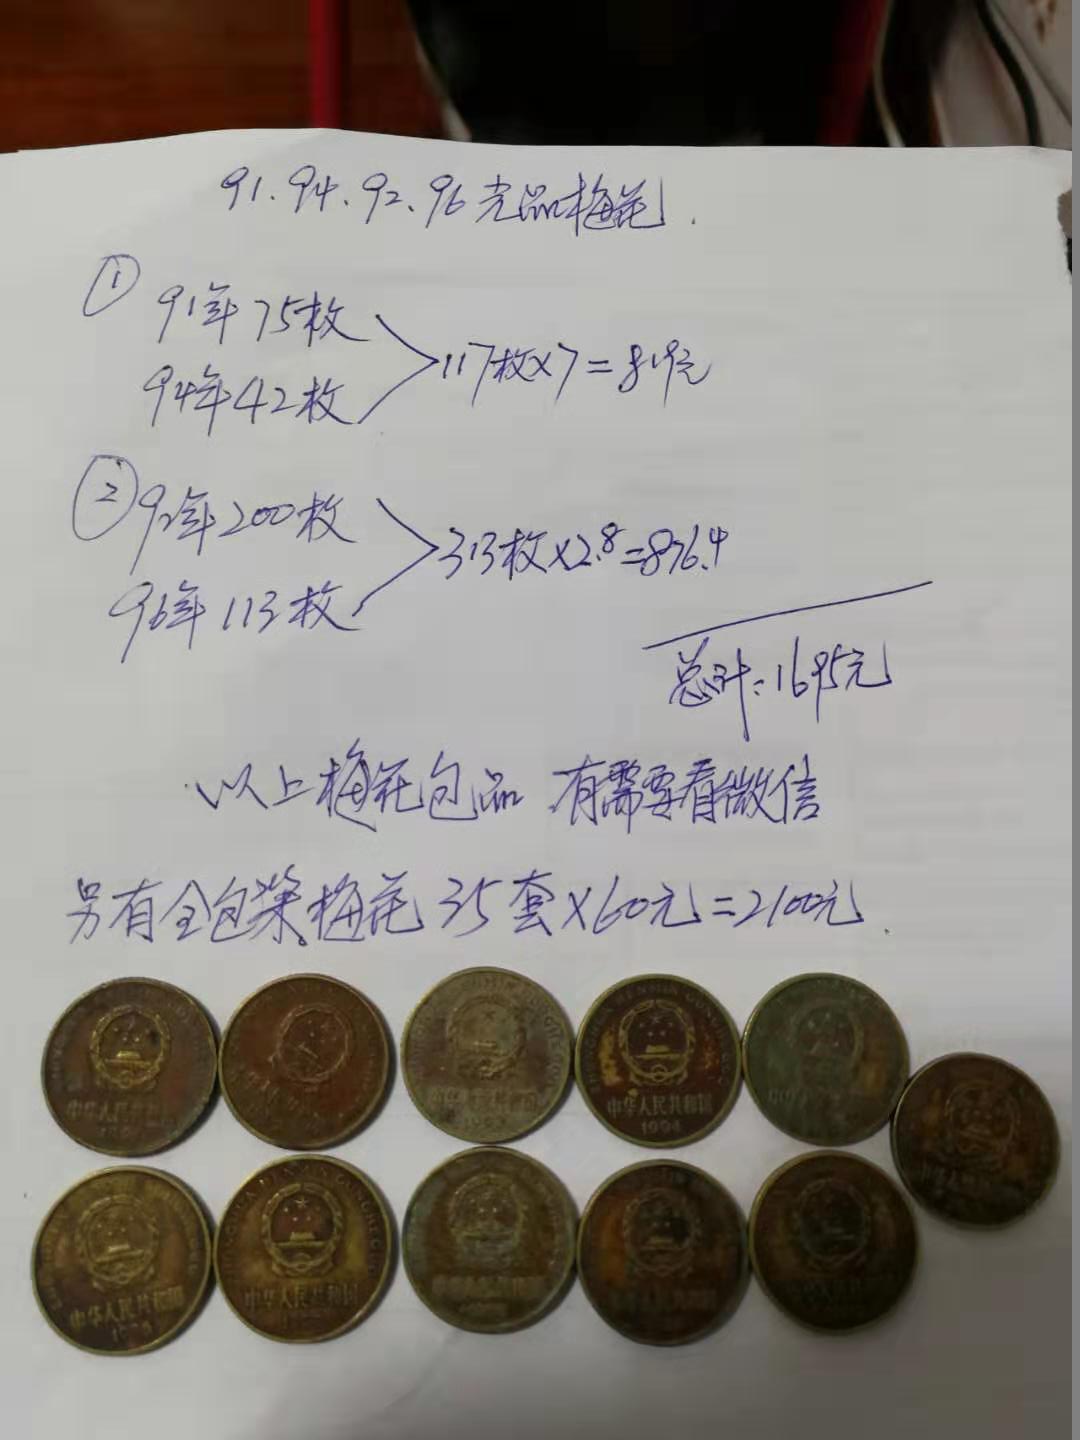 91、94、92、96光品梅花.
① 91年75枚
94年42枚
117枚×7=819元
② 92年200枚
96年113枚
313枚×2.8=876.4
总计:1695元
以上梅花包品 有需要看微信
另有全包浆梅花35套×60元=2100元.
中华人民共和国
中华人民共和国
中华人民共和国
1994
中华人民共和国
中华人民共和国